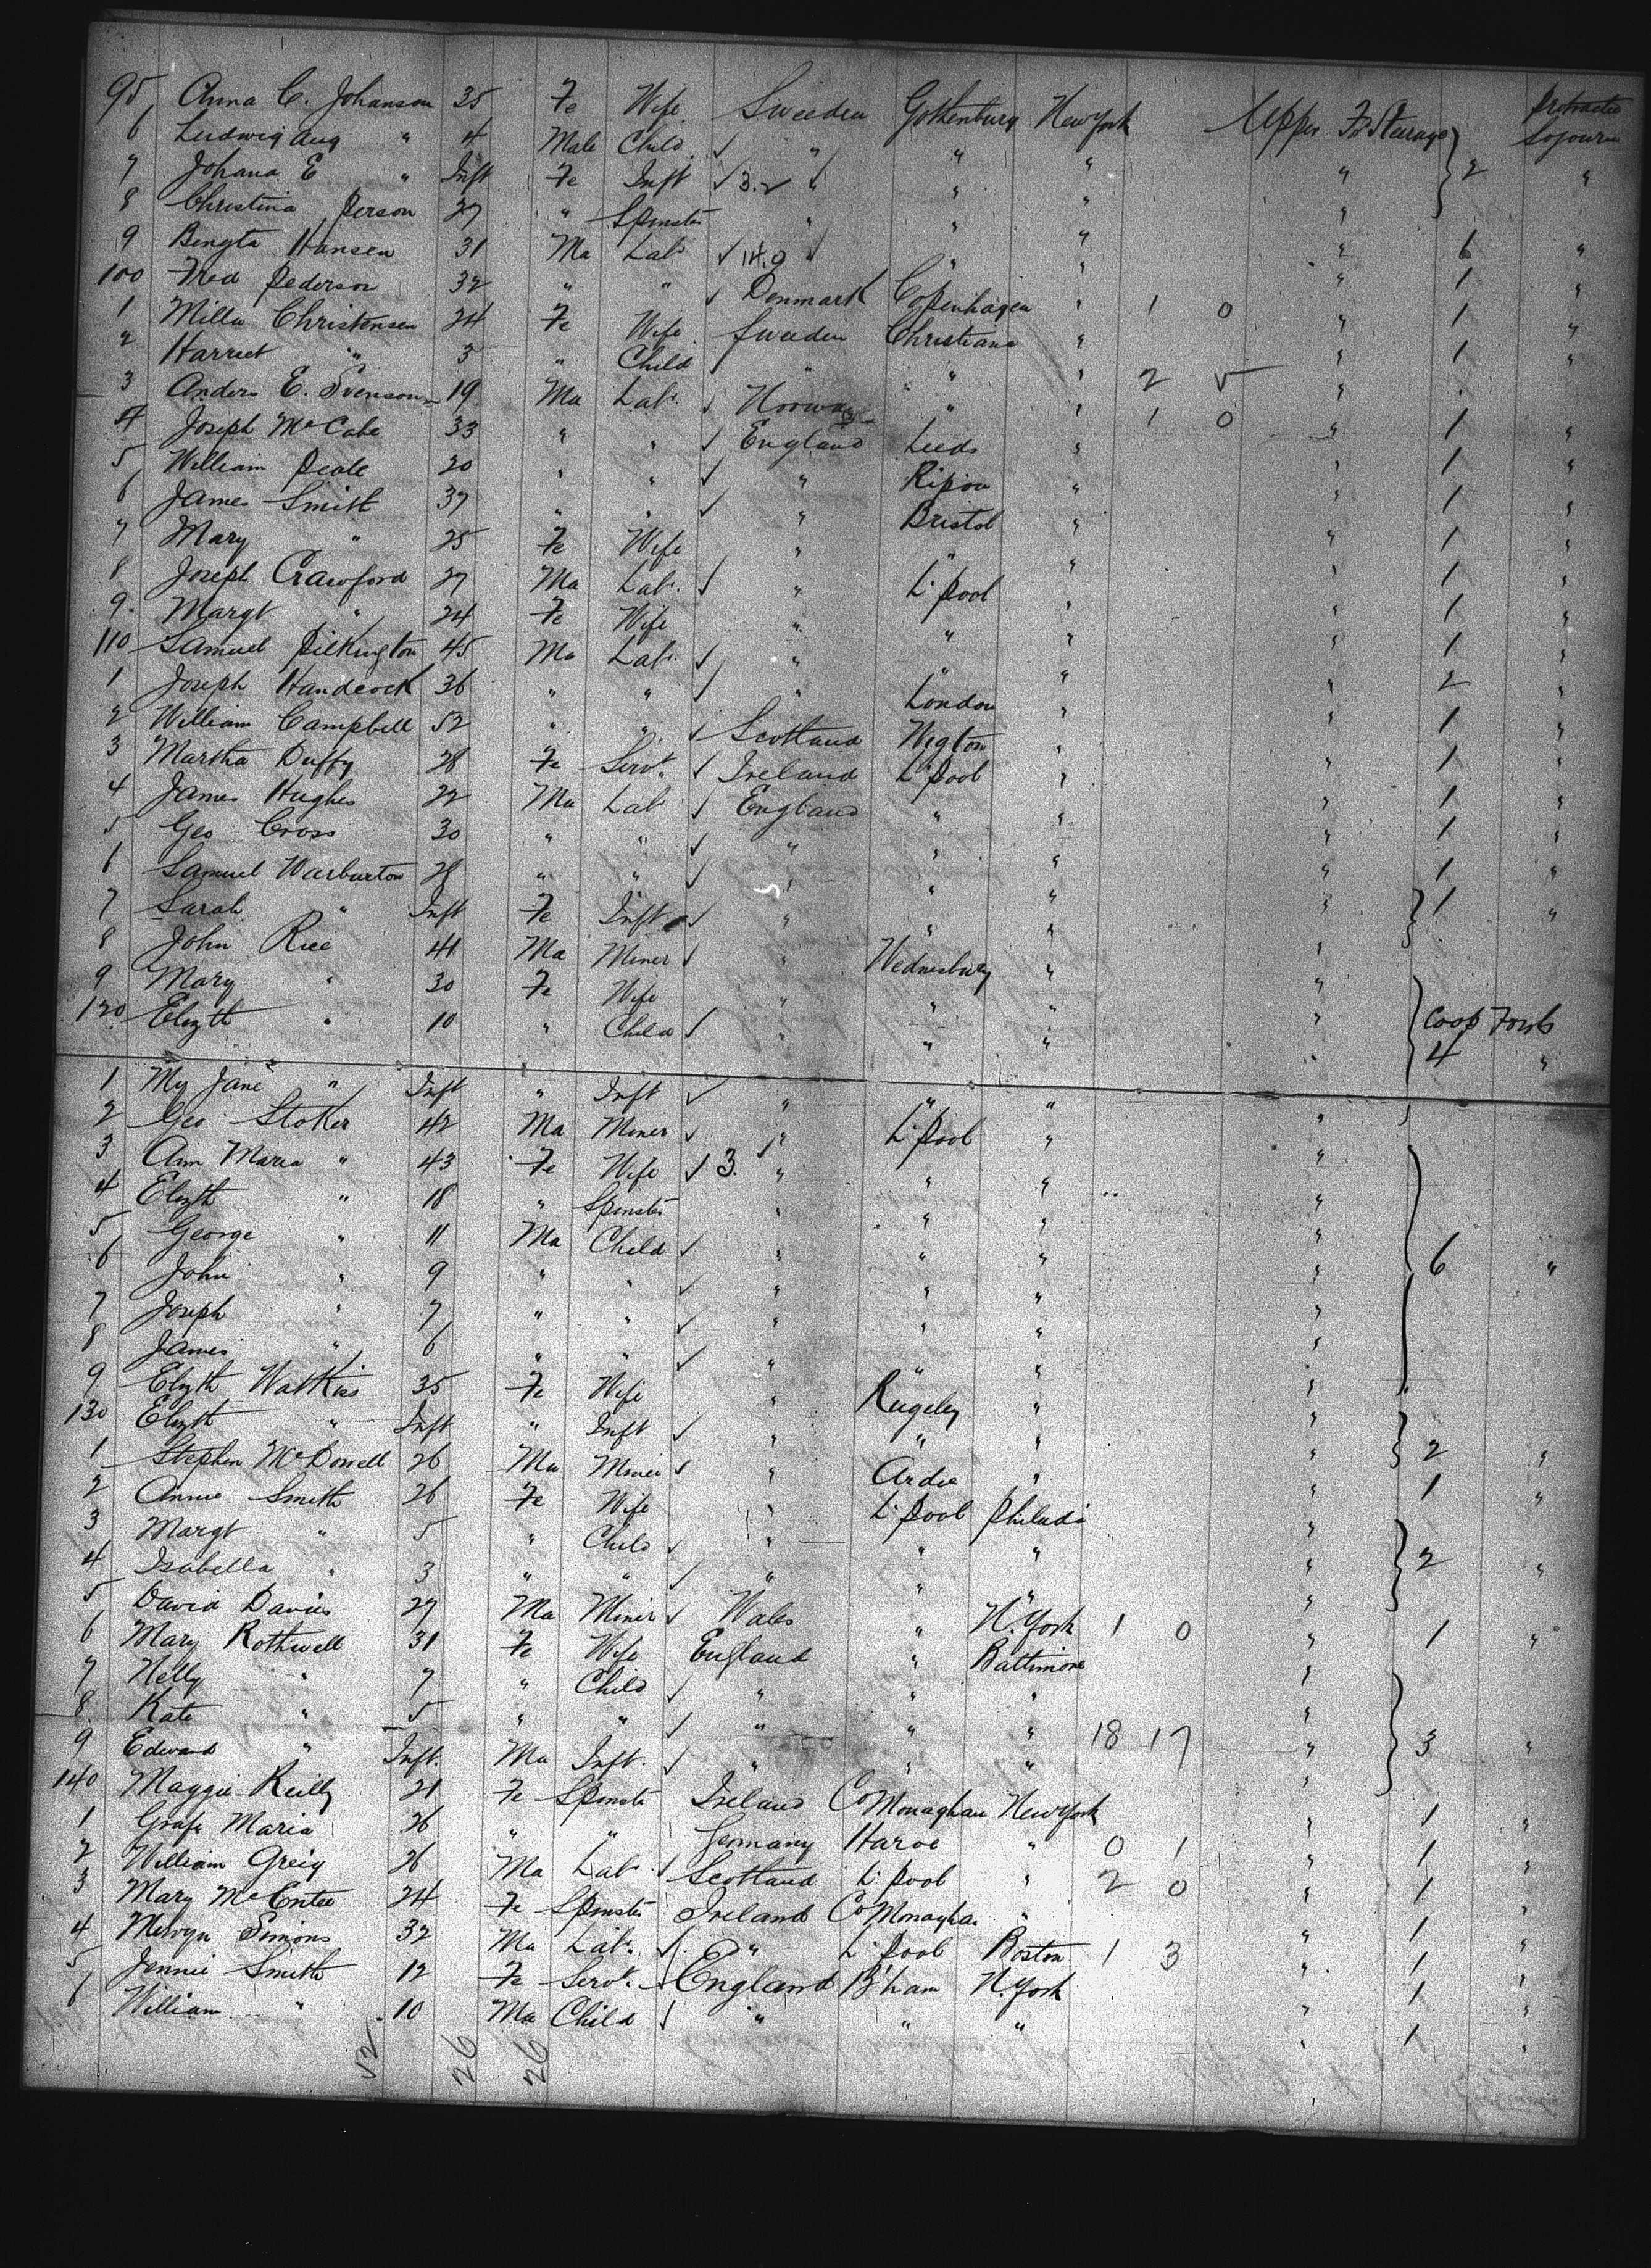 95 Anna C. Johanson 35 Fe Wife Sweeden Gothenburg New York Upper Fd Steerage Protracted Sojourn
6 Ludwig Aug " 4 Male Child " " " "
7 Johana E " Inft Fe Inft 3.2 " " " " 2 "
8 Christina Person 27 " Spinster " " " "
9 Bengta Hansen 31 Ma Labr 14.0 " " " 6 "
100 Fred Pederson 32 " " Denmark Copenhagen " 1 0 " 1 "
1 Milla Christensen 24 Fe Wife Sweeden Christiana " " 1 "
2 Harriet " 3 " Child " " " 2 5 " 1 "
3 Anders E. Svenson 19 Ma Labr Norway " " 1 0 "
4 Joseph McCabe 33 " " England Leeds " " 1 "
5 William Peale 20 " " " Ripon " " 1 "
6 James Smith 37 " " " Bristol " " 1 "
7 Mary " 25 Fe Wife " " " " 1 "
8 Joseph Crawford 27 Ma Labr " L'Pool " " 1 "
9 Margt " 24 Fe Wife " " " " 1 "
110 Samuel Pilkington 45 Ma Labr " " " " 1 "
1 Joseph Handcock 36 " " " London " " 2 "
2 William Campbell 52 " " Scotland Wigton " " 1 "
3 Martha Duffy 28 Fe Servt Ireland L'Pool " " 1 "
4 James Hughes 22 Ma Labr England " " " 1 "
5 Geo Cross 30 " " " " " " 1 "
6 Samuel Warburton 28 " " " " " " 1 "
7 Sarah " Inft Fe Inft " " " " 1 "
8 John Rice 41 Ma Miner " Wednesbury " "
9 Mary " 30 Fe Wife " " " "
120 Elizth " 10 " Child " " " " 4 "
1 My Jane " Inft " Inft " " " "
2 Geo Stoker 42 Ma Miner " L'Pool " "
3 Ann Maria " 43 Fe Wife 3. " " " "
4 Elizth " 18 " Spinster " " " "
5 George " 11 Ma Child " " " "
6 John " 9 " " " " " " 6 "
7 Joseph " 7 " " " " " "
8 James " 6 " " " " " "
9 Elizth Watkins 35 Fe Wife " Rugeley " "
130 Elizth " Inft " Inft " " " " 2 "
1 Stephen McDowell 26 Ma Miner " Ardee " " 1 "
2 Annie Smith 26 Fe Wife " L'Pool Philada "
3 Margt " 5 " Child " " " " 2 "
4 Isabella " 3 " " " " " "
5 David Davies 27 Ma Miner Wales " N. York 1 0 " 1 "
6 Mary Rothwell 31 Fe Wife England " Baltimore "
7 Nelly " 7 " Child " " " "
8 Kate " 5 " " " " " 18 17 " 3 "
9 Edward " Inft. Ma Inft. " " " "
140 Maggie Reilly 21 Fe Spinster Ireland Co Monaghan New York " 1 "
1 Grafe Maria 26 " " Germany Harve " 0 1 " 1 "
2 William Greig 26 Ma Labr Scotland L'Pool " 2 0 " 1 "
3 Mary McEntee 24 Fe Spinster Ireland Co Monaghan " " 1 "
4 Melvyn Simons 32 Ma Labr " L'Pool Boston 1 3 " 1 "
5 Jennie Smith 12 Fe Servt. England B'ham N. York " 1 "
6 William " 10 Ma Child " " " " 1 "
52 26 26